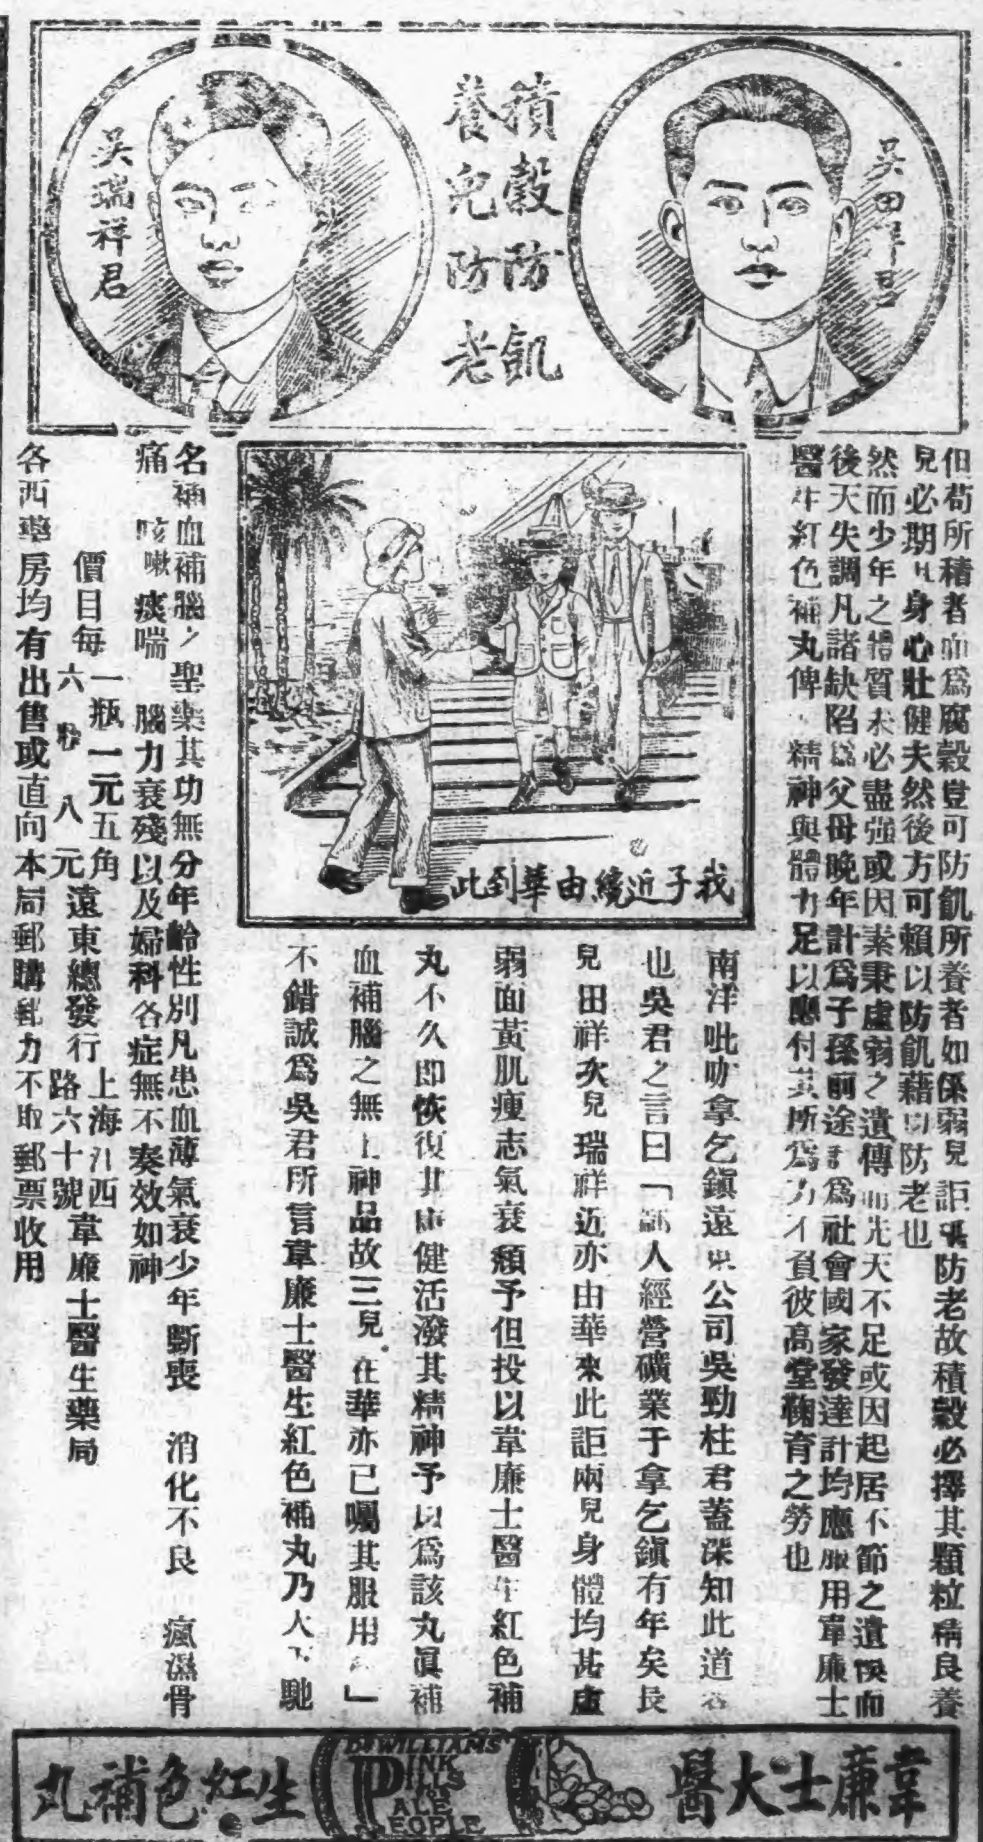 積穀防飢
養兒防老
吳田祥君
吳瑞祥君
但苟所積者而為腐穀豈可防飢所養者如係弱兒詎堪防老故積穀必擇其顆粒精良養
兒必期其身心壯健夫然後方可賴以防飢藉以防老也
然而少年之體質未必盡強或因素秉虛弱之遺傳而先天不足或因起居不節之遺悞而
後天失調凡諸缺陷為父母晚年計為子孫前途計為社會國家發達計均應服用韋廉士
醫生紅色補丸俾精神與體力足以應付其所為力不負彼高堂鞠育之勞也
我子近纔由華到此
南洋吡叻拿乞鎮遠東公司吳勁柱君蓋深知此道者
也吳君之言曰「鄙人經營礦業于拿乞鎮有年矣長
兒田祥次兒瑞祥近亦由華來此詎兩兒身體均甚虛
弱面黃肌瘦志氣衰頹予但投以韋廉士醫生紅色補
丸不久即恢復其康健活潑其精神予以為該丸眞補
血補腦之無上神品故三兒在華亦已囑其服用」
不錯誠為吳君所言韋廉士醫生紅色補丸乃天下馳
名補血補腦之聖藥其功無分年齡性別凡患血薄氣衰少年斷喪 消化不良 瘋濕骨
痛 咳嗽痰喘 腦力衰殘以及婦科各症無不奏效如神
價目每一瓶一元五角六瓶八元遠東總發行上海江西路六十號韋廉士醫生藥局
各西藥房均有出售或直向本局郵購郵力不取郵票收用
韋廉士大醫生紅色補丸
Dr WILLIAMS'
PINK
PILLS
FOR
PALE
PEOPLE